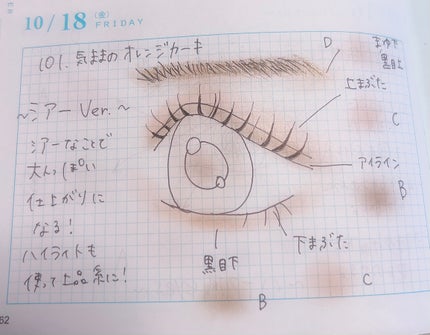 10/18(金)
FRIDAY
101. 気ままの オレンジカーキ
~シアー Ver.~
シアーなことで
大人っぽい
仕上がりに
なる!
ハイライトも
使って上品系に!
D
まゆ下
黒目上
上まぶた
C
アイライン
B
下まぶた
黒目下
C
B
62